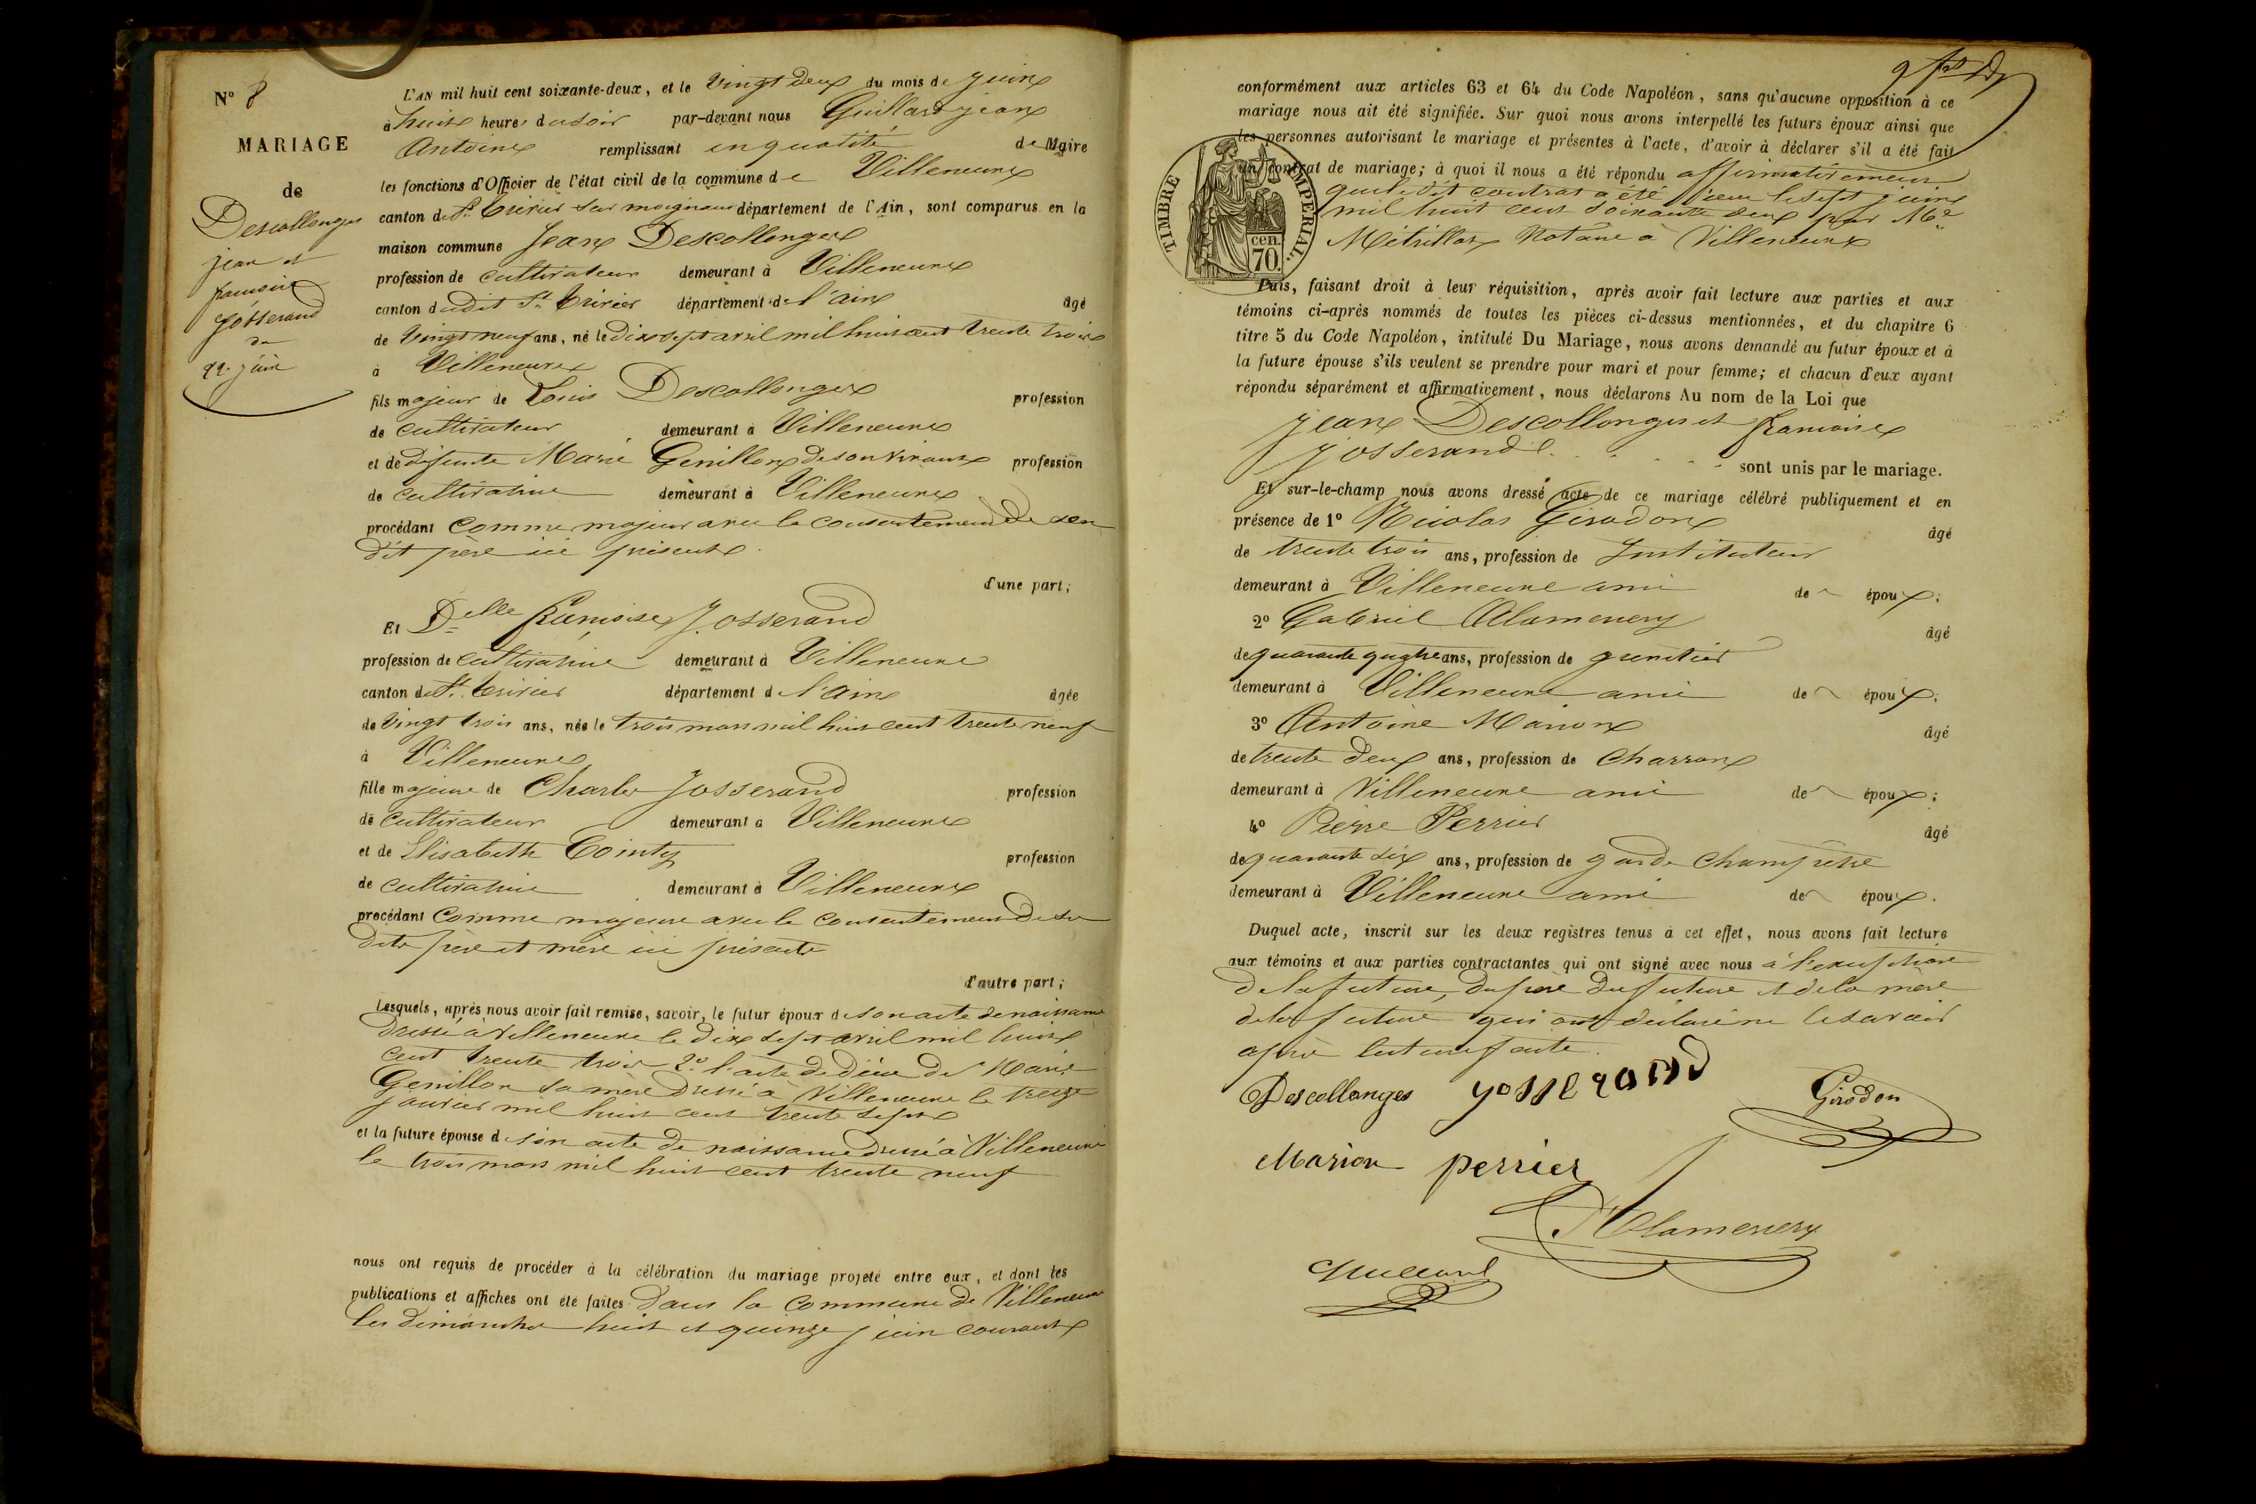 N° 8
MARIAGE
de
Descollonges
jean et
françoise
Josserand
du
22 juin
L'AN mil huit cent soixante-deux, et le vingt deux du mois de juin
à huit heures du soir par-devant nous Guillard jean
Antoine remplissant en qualité de Maire
les fonctions d'Officier de l'état civil de la commune de Villeneuve
canton de St. Trivier sur moignans département de l'Ain, sont comparus en la
maison commune Jean Descollonges
profession de cultivateur demeurant à Villeneuve
canton dudit St. Trivier département de l'ain âgé
de vingt neuf ans, né le dix sept avril mil huit cent trente trois
à Villeneuve
fils majeur de Louis Descollonges profession
de cultivateur demeurant à Villeneuve
et de défunte Marie Genillon de son vivant profession
de cultivatrice demeurant à Villeneuve
procédant comme majeur avec le consentement de son
dit père ici présent
d'une part;
Et Delle françoise Josserand
profession de cultivatrice demeurant à Villeneuve
canton de St. Trivier département de l'ain âgée
de vingt trois ans, née le trois mars mil huit cent trente neuf
à Villeneuve
fille majeure de Charles Josserand profession
de cultivateur demeurant à Villeneuve
et de Elisabeth Cointy profession
de cultivatrice demeurant à Villeneuve
procédant comme majeure avec le consentement de ses
dits père et mère ici présents
d'autre part;
Lesquels, après nous avoir fait remise, savoir, le futur époux de son acte de naissance
dressé à Villeneuve le dix sept avril mil huit
cent trente trois 2° l'acte de décès de Marie
Genillon sa mère dressé à Villeneuve le treize
janvier mil huit cent trente sept
et la future épouse de son acte de naissance dressé à Villeneuve
le trois mars mil huit cent trente neuf
nous ont requis de procéder à la célébration du mariage projeté entre eux, et dont les
publications et affiches ont été faites dans la commune de Villeneuve
les dimanches huit et quinze juin courant
conformément aux articles 63 et 64 du Code Napoléon, sans qu'aucune opposition à ce
mariage nous ait été signifiée. Sur quoi nous avons interpellé les futurs époux ainsi que
les personnes autorisant le mariage et présentes à l'acte, d'avoir à déclarer s'il a été fait
un contrat de mariage; à quoi il nous a été répondu affirmativement
que le dit contrat a été reçu le sept juin
mil huit cent soixante deux par Me
Métrillot Notaire à Villeneuve
TIMBRE IMPERIAL
cen.
70.
Puis, faisant droit à leur réquisition, après avoir fait lecture aux parties et aux
témoins ci-après nommés de toutes les pièces ci-dessus mentionnées, et du chapitre 6
titre 5 du Code Napoléon, intitulé Du Mariage, nous avons demandé au futur époux et à
la future épouse s'ils veulent se prendre pour mari et pour femme; et chacun d'eux ayant
répondu séparément et affirmativement, nous déclarons Au nom de la Loi que
Jean Descollonges et françoise
Josserand
sont unis par le mariage.
Et sur-le-champ nous avons dressé acte de ce mariage célébré publiquement et en
présence de 1° Nicolas Girodon âgé
de trente trois ans, profession de Instituteur
demeurant à Villeneuve ami de époux;
2° Gabriel Alamenery âgé
de quarante quatre ans, profession de
demeurant à Villeneuve ami de époux;
3° Antoine Marion âgé
de trente deux ans, profession de charron
demeurant à Villeneuve ami de époux;
4° Pierre Perrier âgé
de quarante six ans, profession de garde champêtre
demeurant à Villeneuve ami de époux.
Duquel acte, inscrit sur les deux registres tenus à cet effet, nous avons fait lecture
aux témoins et aux parties contractantes qui ont signé avec nous à l'exception
de la future, du père du future et de la mère
de la future qui ont déclaré ne le savoir
après lecture faite.
Descollonges Josserand Girodon
Marion perrier
Alamenery
Guillard